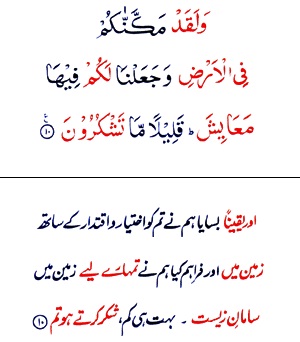 وَلَقَدْ مَكَّنّٰكُمْ
فِی الْاَرْضِ وَجَعَلْنَا لَكُمْ فِیْهَا
مَعَایِشَ ؕ قَلِیْلًا مَّا تَشْكُرُوْنَ ﴿۱۰﴾ ع
اور یقیناً بسایا ہم نے تم کو اختیار و اقتدار کے ساتھ
زمین میں اور فراہم کیا ہم نے تمہارے لیے زمین میں
سامانِ زیست ۔ بہت ہی کم، شکر کرتے ہو تم ﴿۱۰﴾